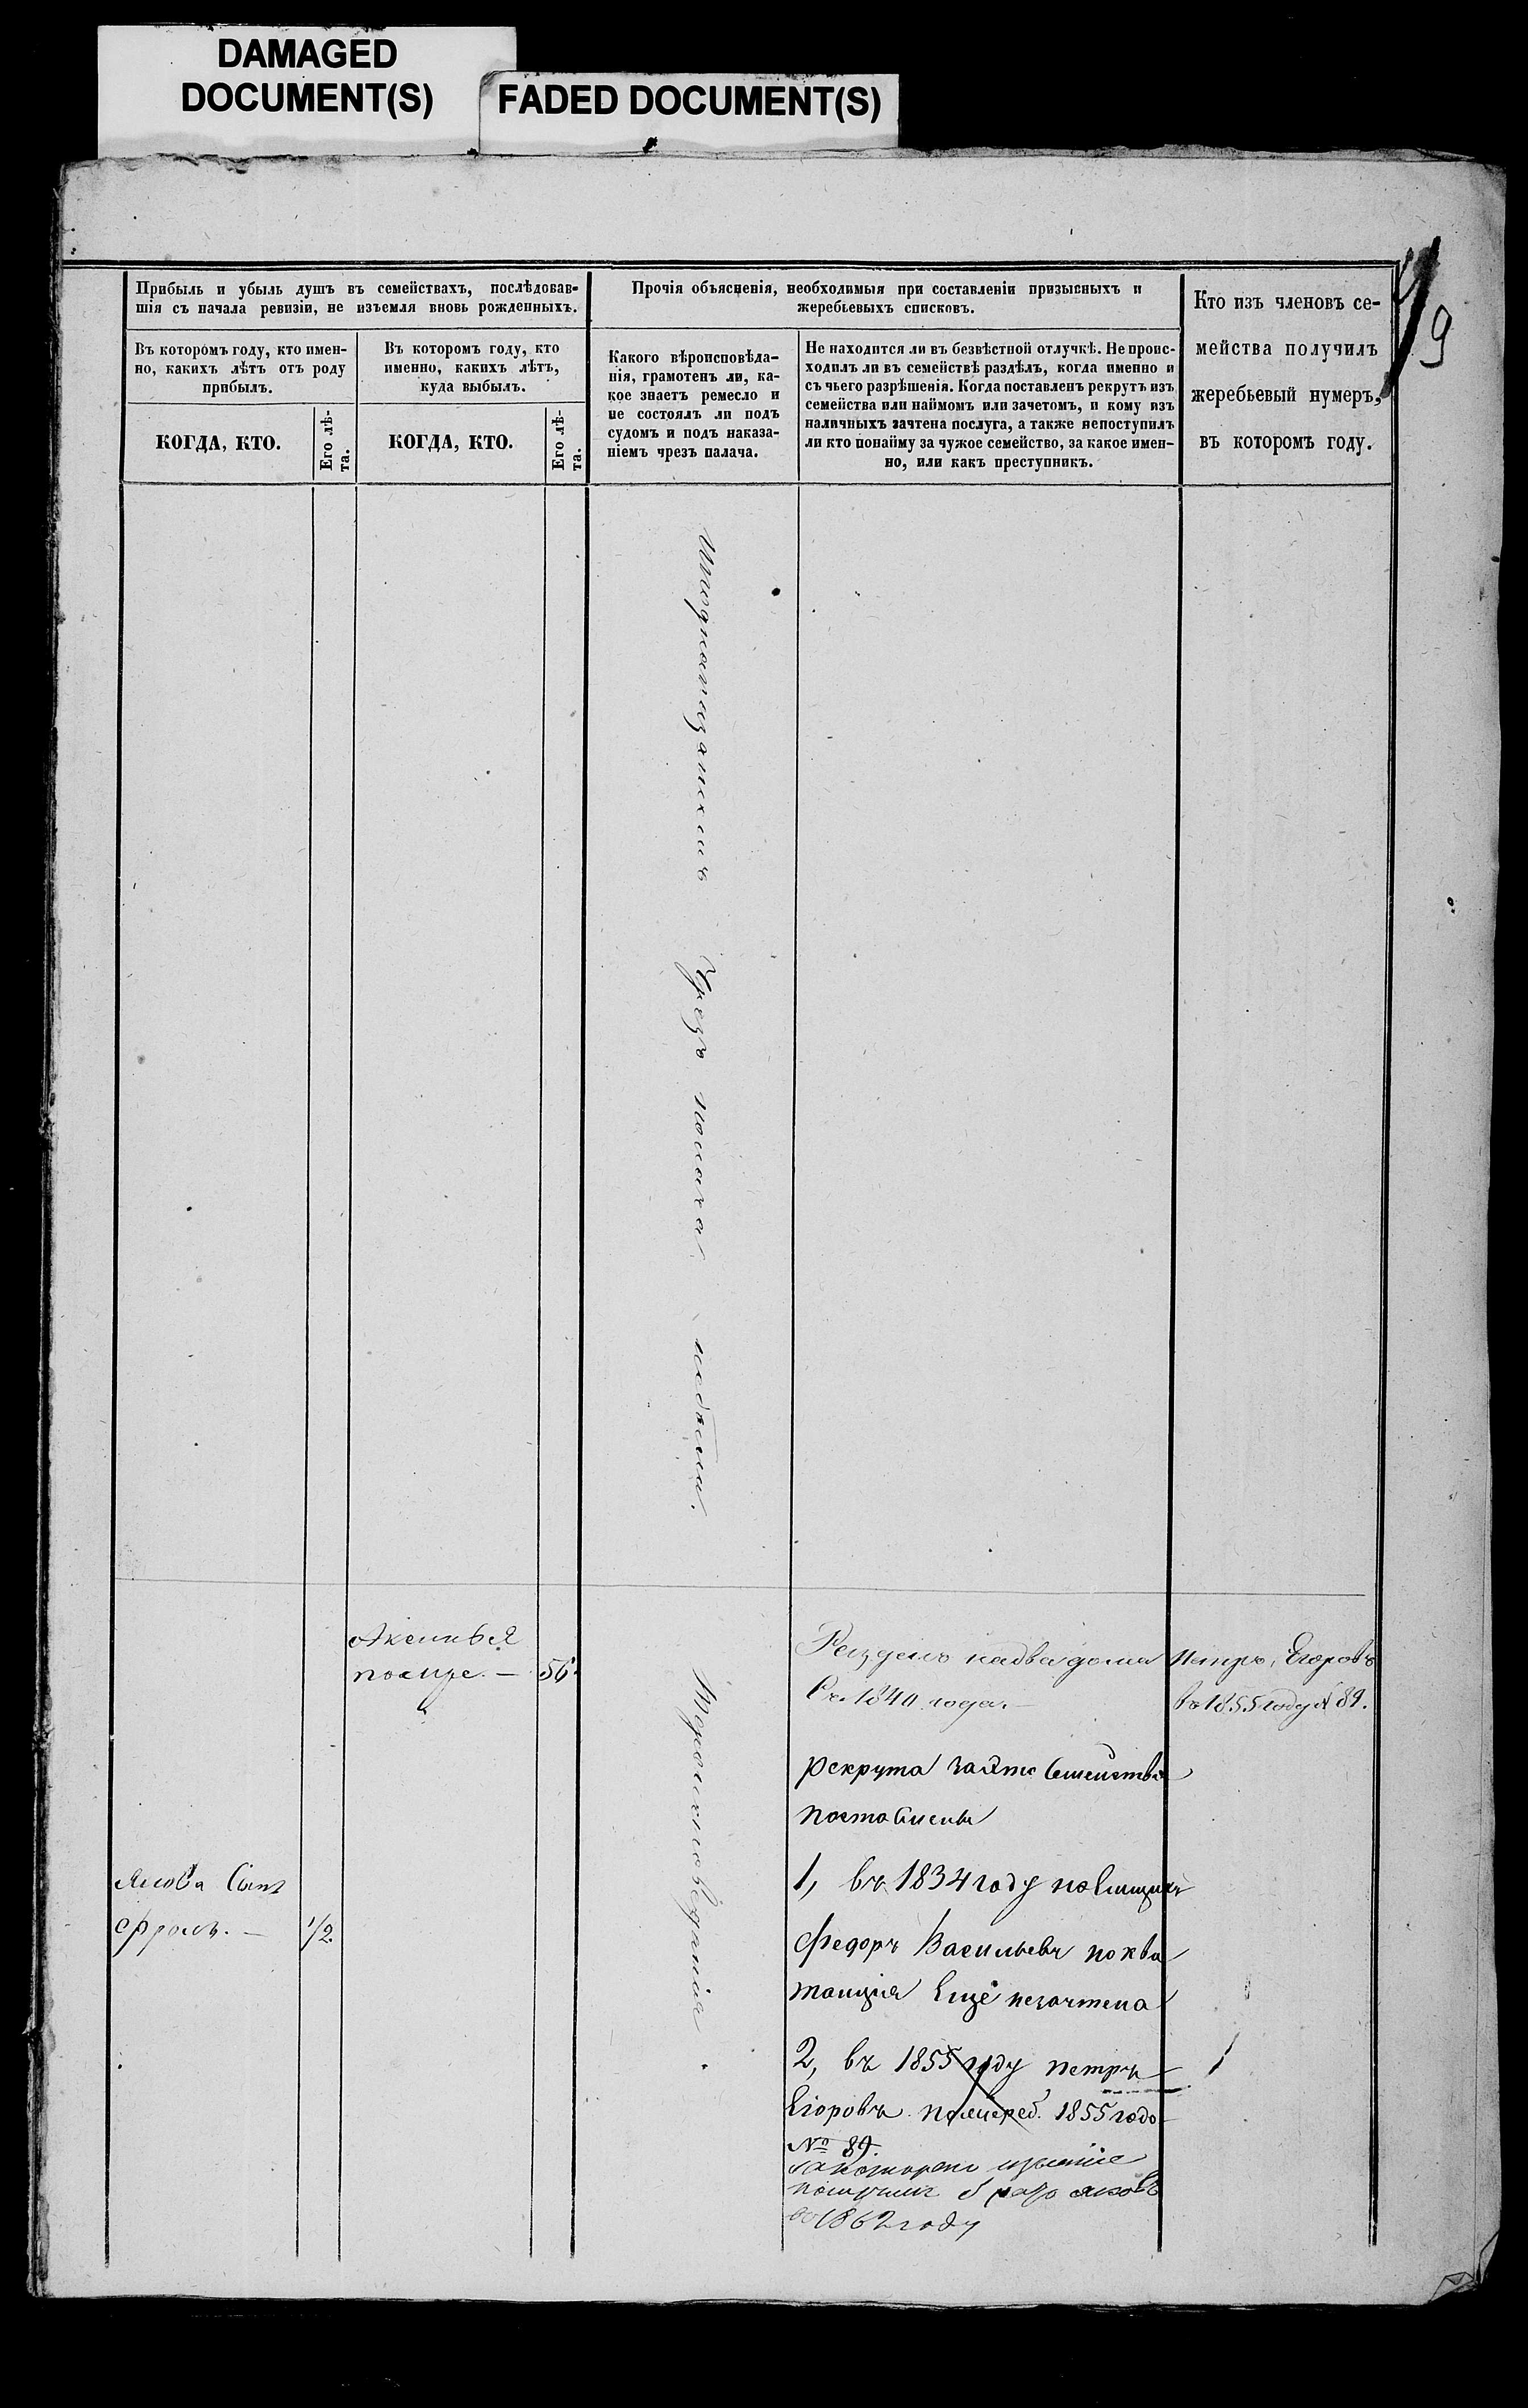 DAMAGED
DOCUMENT(S)
FADED DOCUMENT(S)
9
Прибыль и убыль душъ въ семействахъ, послѣдовав-
шія съ начала ревизіи, не изъемля вновь рожденныхъ.
Въ которомъ году, кто имен-
но, какихъ лѣтъ отъ роду
прибылъ.
КОГДА, КТО.
Его лѣ-
та.
Въ которомъ году, кто
именно, какихъ лѣтъ,
куда выбылъ.
КОГДА, КТО.
Его лѣ-
та.
Прочія объясненія, необходимыя при составленіи призывныхъ и
жеребьевыхъ списковъ.
Какого вѣроисповѣда-
нія, грамотенъ ли, ка-
кое знаетъ ремесло и
не состоялъ ли подъ
судомъ и подъ наказа-
ніемъ чрезъ палача.
Не находится ли въ безвѣстной отлучкѣ. Не проис-
ходилъ ли въ семействѣ раздѣлъ, когда именно и
съ чьего разрѣшенія. Когда поставленъ рекрутъ изъ
семейства или наймомъ или зачетомъ, и кому изъ
наличныхъ зачтена послуга, а также непоступилъ
ли кто понайму за чужое семейство, за какое имен-
но, или какъ преступникъ.
Кто изъ членовъ се-
мейства получилъ
жеребьевый нумеръ,
въ которомъ году.
чрезъ палача небыли.
Аксинья
56.
Раздѣлъ надва дома
Съ 1840 года.
Петръ Егоровъ
въ 1855 году № 89.
рекрута заэто Семейства
поставлены
Якова Сынъ
Фролъ. — 1/2.
1, въ 1834 году
Федоръ Васильевъ поква
танція Ещё незачтена
2, въ 1855 году петръ
Егоровъ 1855 годо
№ 89.
получилъ братъ яковъ
въ 1862 году